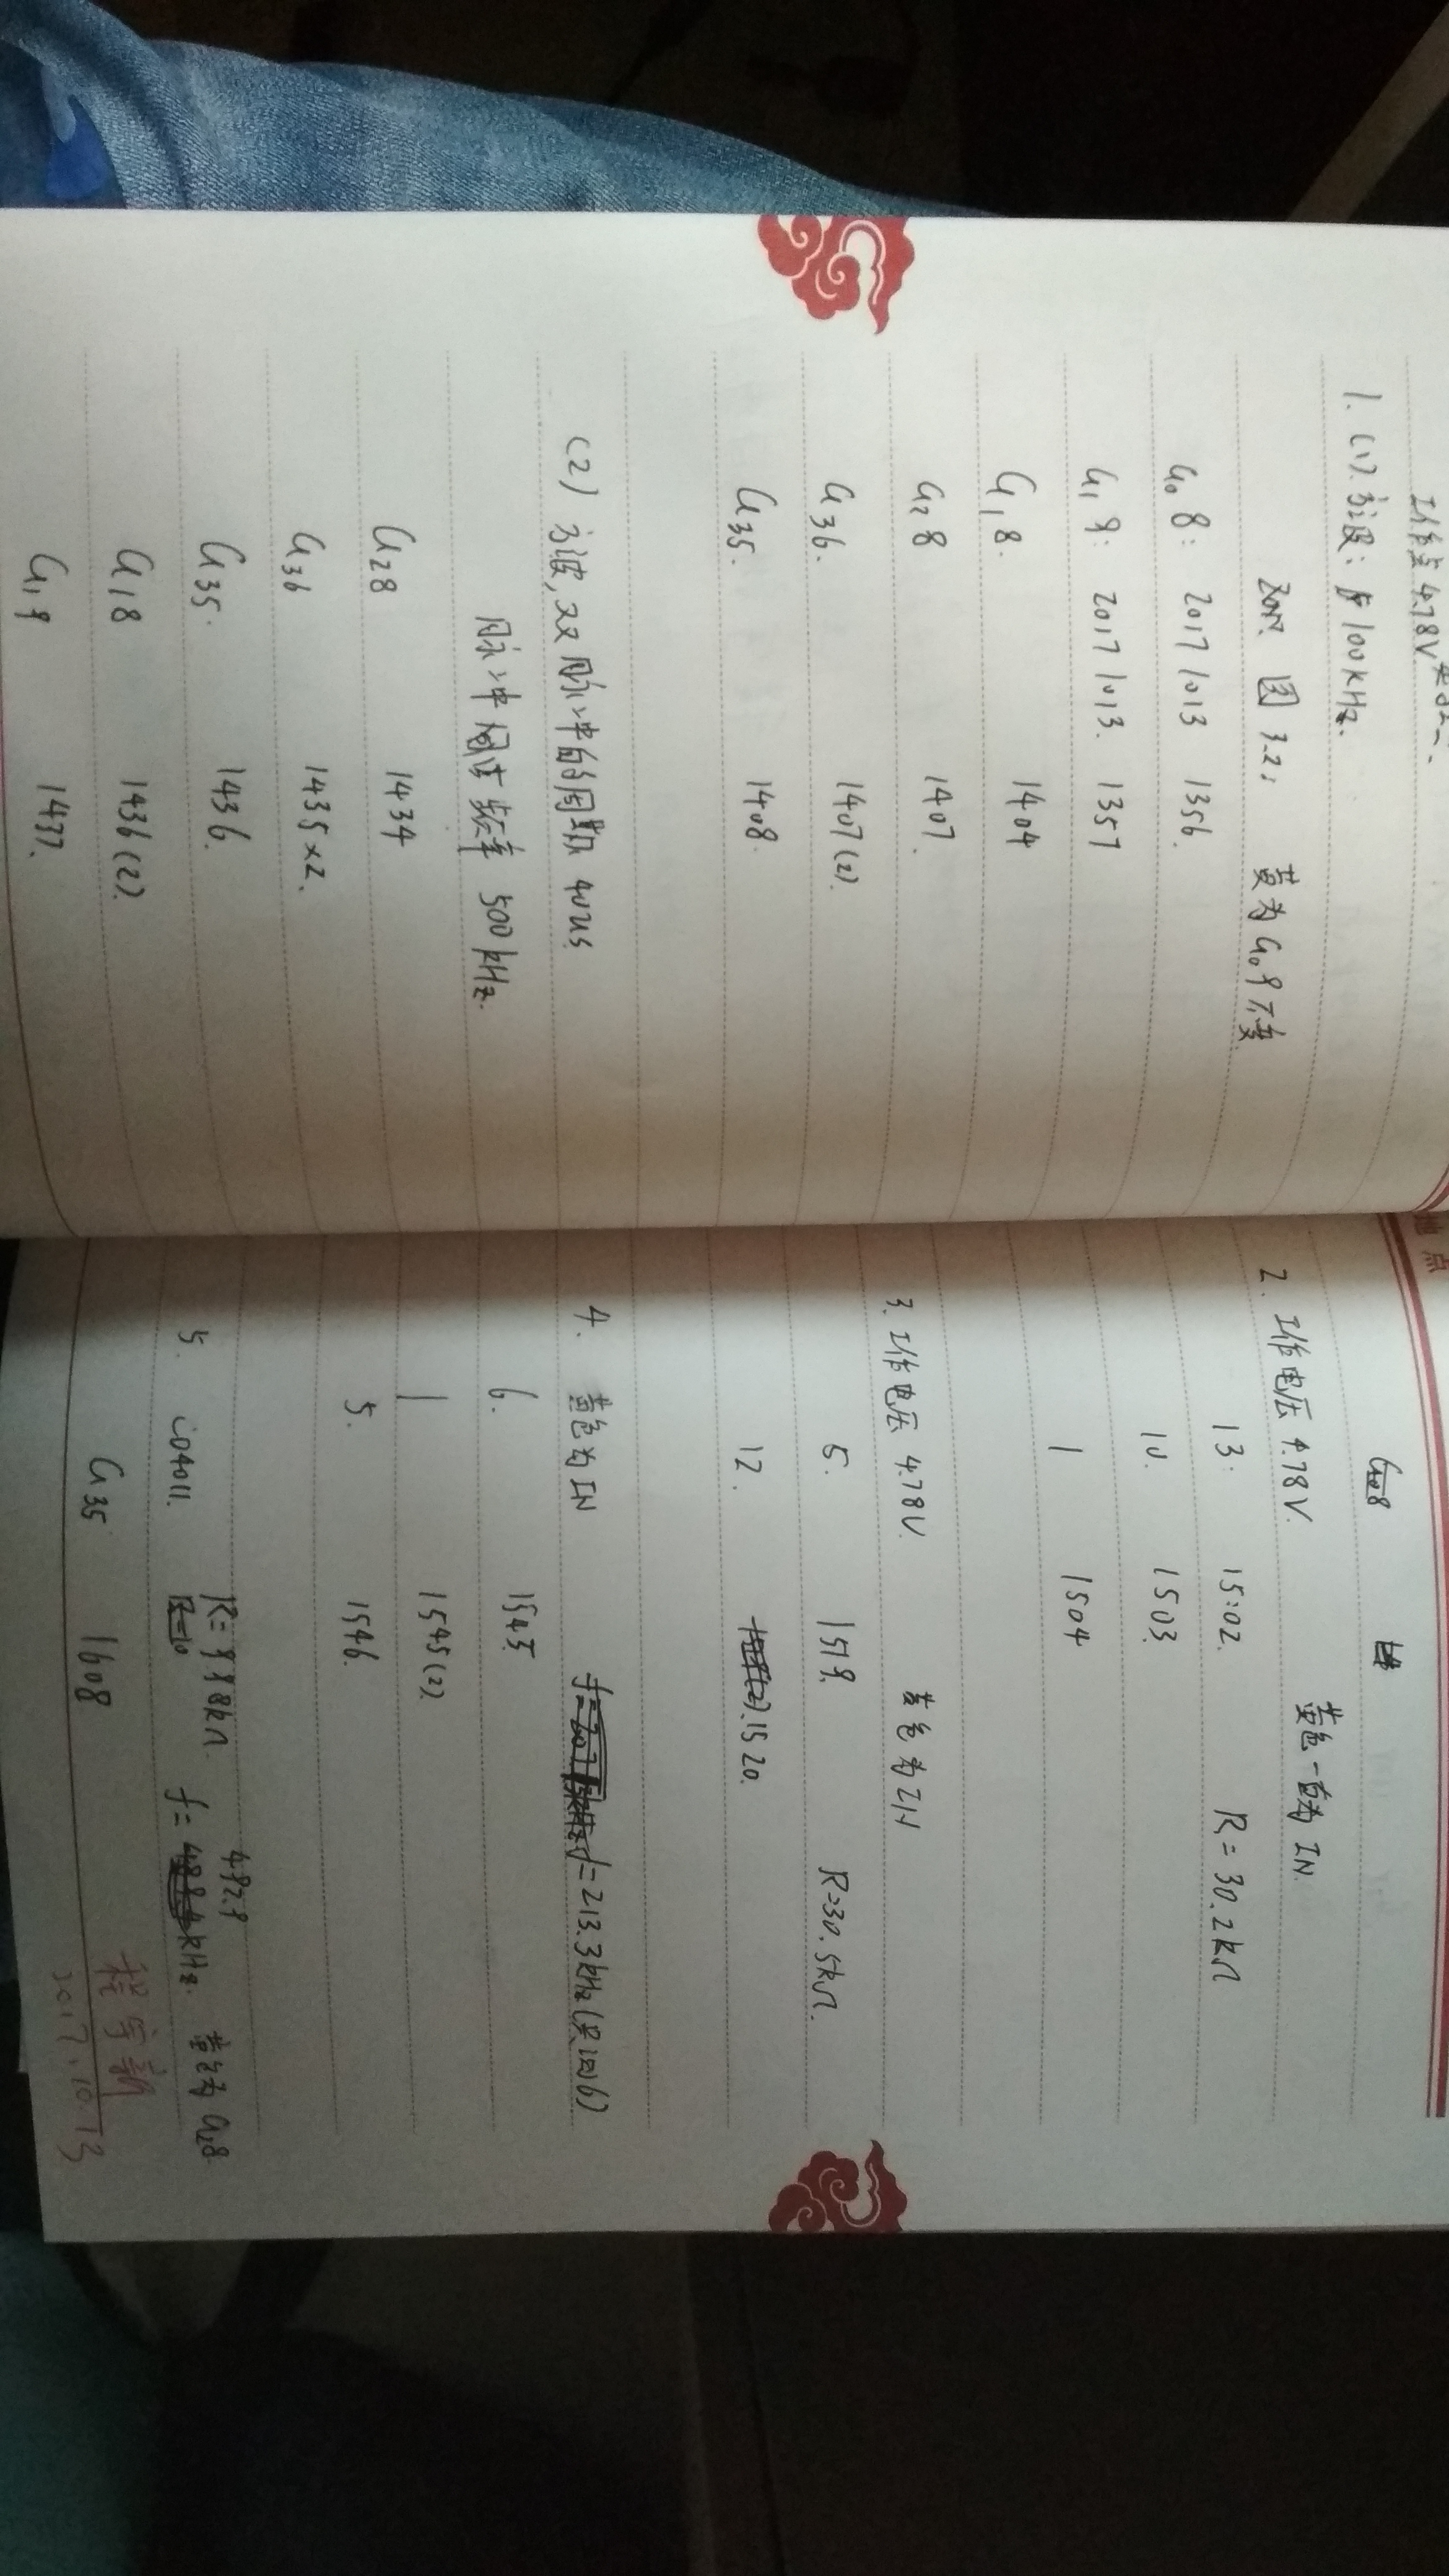 工作点 4.78V
1. (1). 方波: 100kHz.
图 3.2; 黄为 G₀9 不变
G₀8: 20171013 1356.
G₁9: 20171013. 1357
G₁8. 1404
G₂8 1407.
G₃6. 1407(2).
G₃5. 1408.
(2) 方波, 双脉冲的周期 40us
脉冲间 频率 500kHz.
G₂8 1434
G₃6 1435×2.
G₃5. 1436.
G₁8 1436(2).
G₁9 1437.
地点
2. 工作电压 4.78V. 黄色一直为 IN
13. 15:02. R=30.2kΩ
10. 1503.
1 1504
3. 工作电压 4.78V. 黄色为 IN
5. 1519. R=30.5kΩ.
12. 1520.
4. 黄色为 IN f=213.3kHz
6. 1545
1 1545(2).
5. 1546.
5. R=9.98kΩ. f=492.9kHz. 黄色为 G₂8
G₃5 1608
2017.10.13